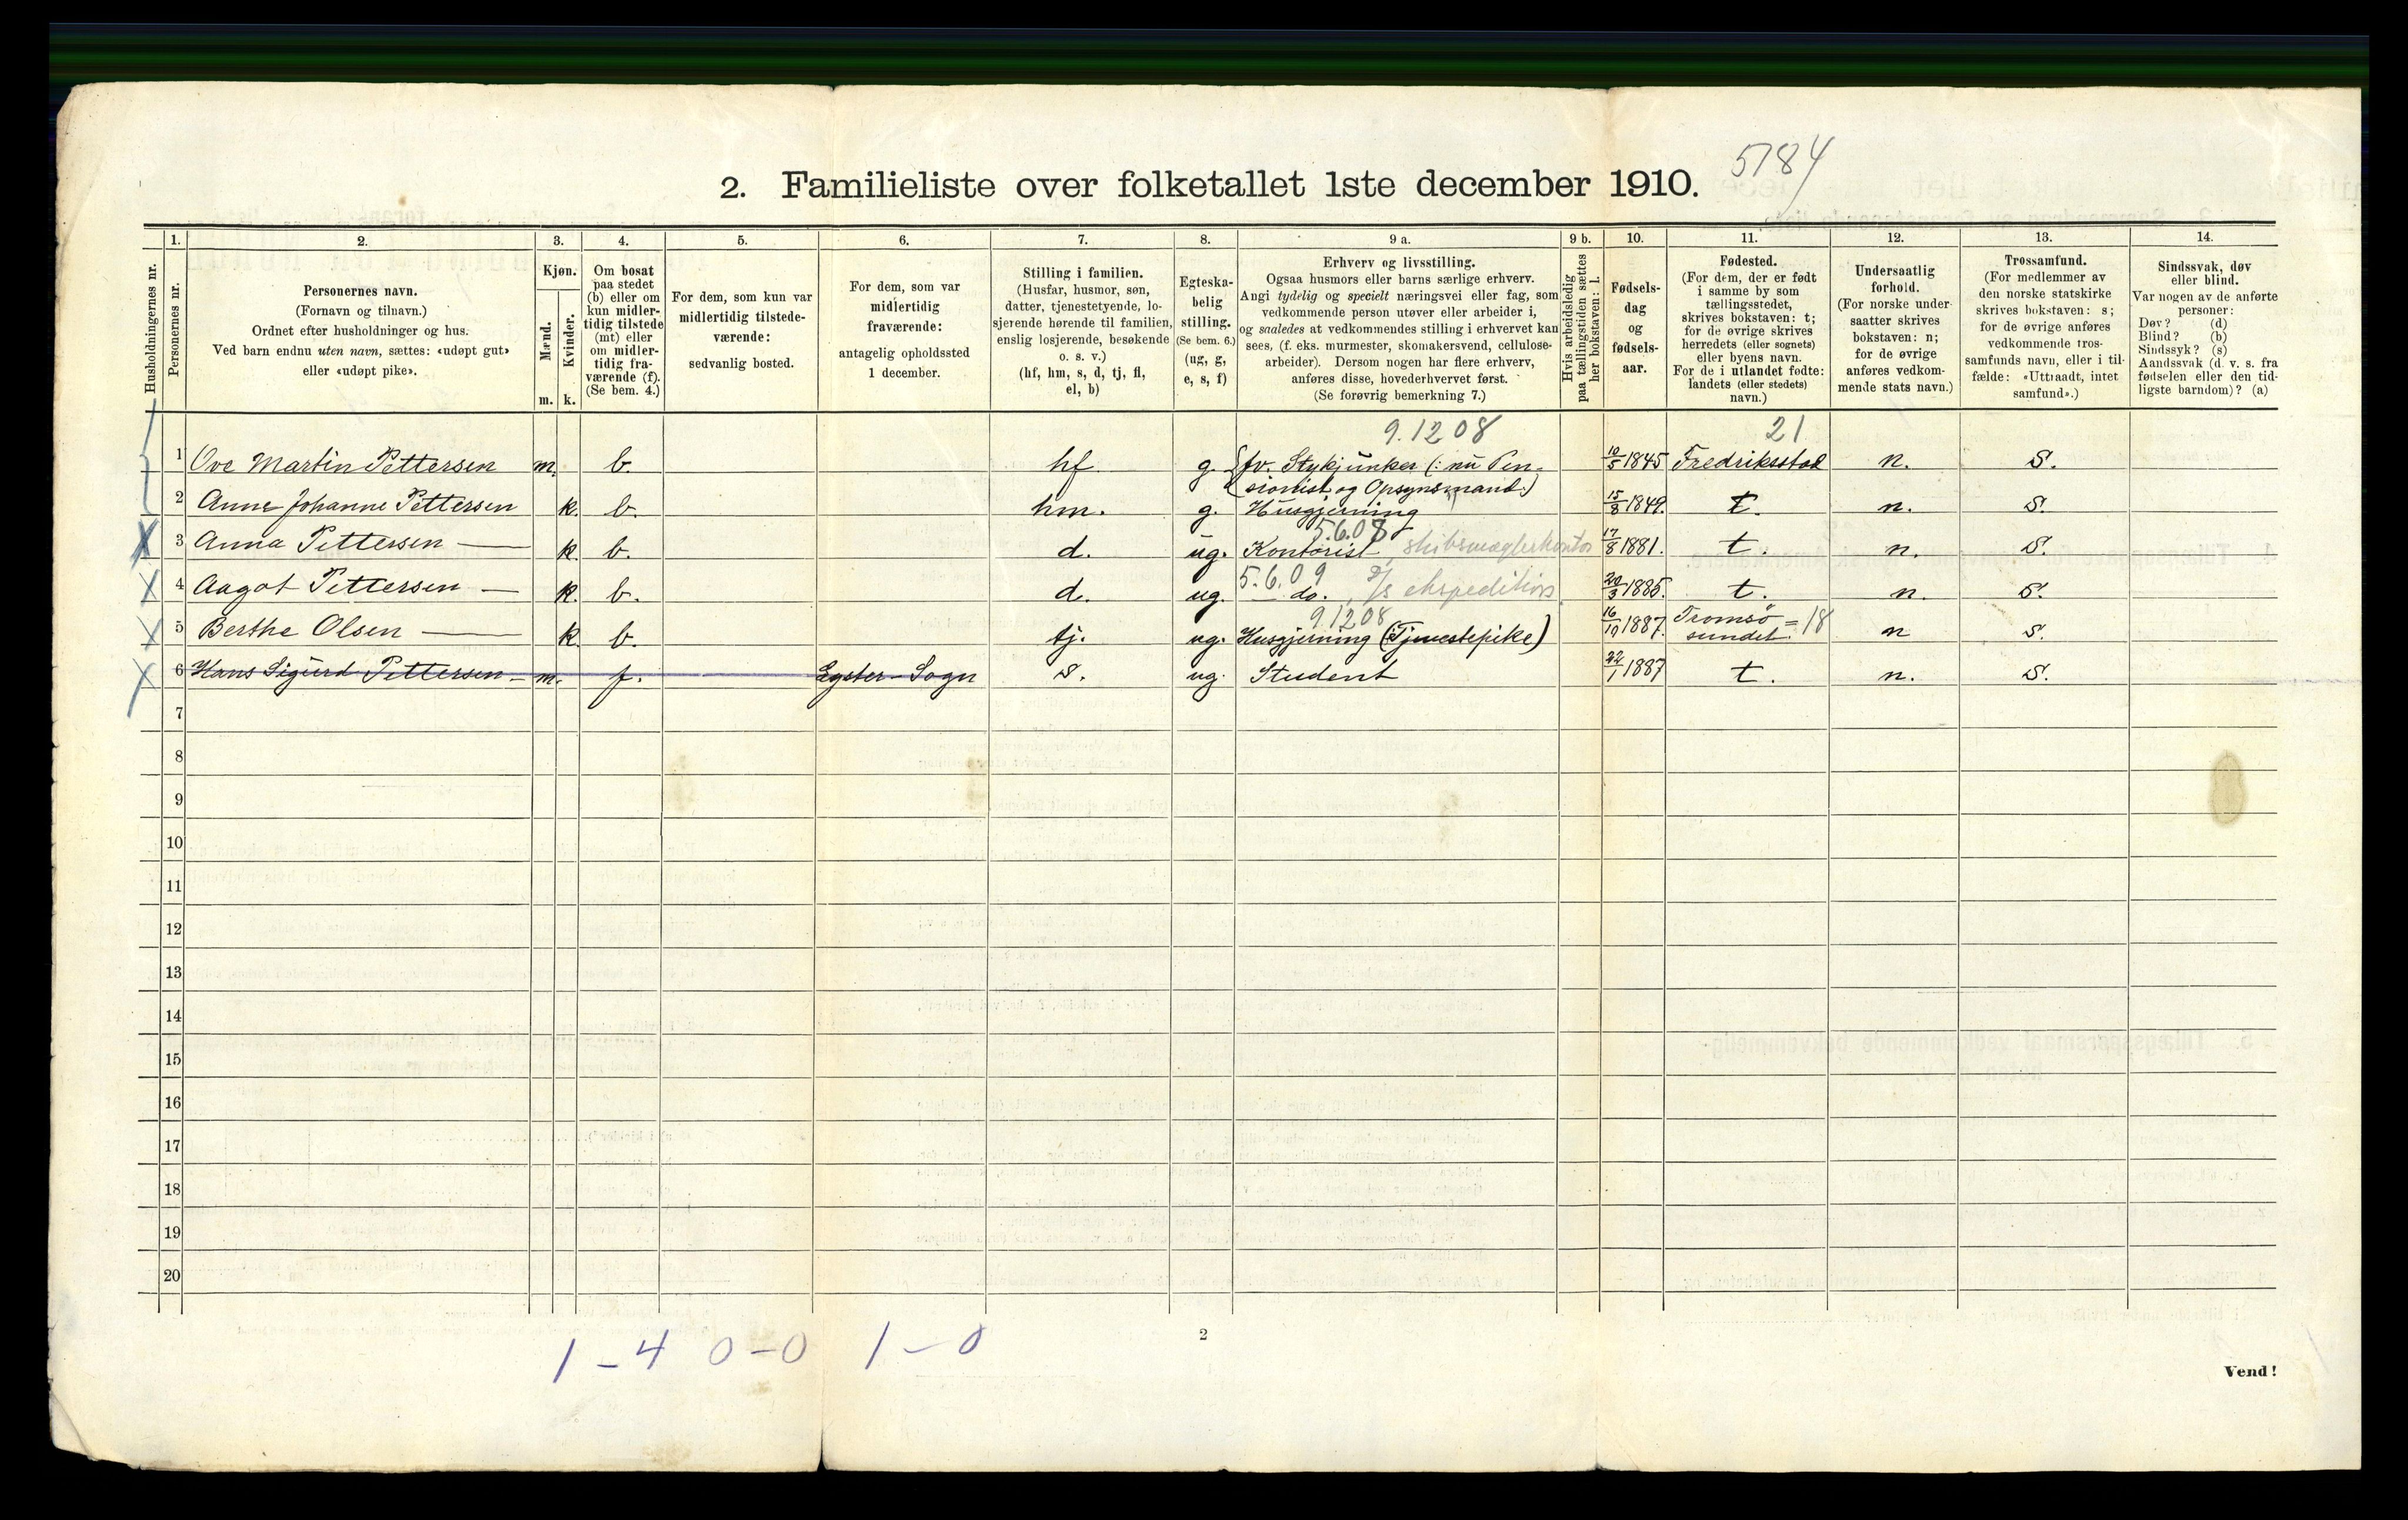 5784
2. Familieliste over folketallet 1ste december 1910.
Husholdningernes nr.
1.
Personernes nr.
2.
Personernes navn.
(Fornavn og tilnavn.)
Ordnet efter husholdninger og hus.
Ved barn endnu uten navn, sættes: «udøpt gut»
eller «udøpt pike».
3.
Kjøn.
Mænd.
Kvinder.
m.
k.
4.
Om bosat
paa stedet
(b) eller om
kun midler-
tidig tilstede
(mt) eller
om midler-
tidig fra-
værende (f).
(Se bem. 4.)
5.
For dem, som kun var
midlertidig tilstede-
værende:
sedvanlig bosted.
6.
For dem, som var
midlertidig
fraværende:
antagelig opholdssted
1 december.
7.
Stilling i familien.
(Husfar, husmor, søn,
datter, tjenestetyende, lo-
sjerende hørende til familien,
enslig losjerende, besøkende
o. s. v.)
(hf, hm, s, d, tj, fl,
el, b)
8.
Egteska-
belig
stilling.
(Se bem. 6.)
(ug, g,
e, s, f)
9 a.
Erhverv og livsstilling.
Ogsaa husmors eller barns særlige erhverv.
Angi tydelig og specielt næringsvei eller fag, som
vedkommende person utøver eller arbeider i,
og saaledes at vedkommendes stilling i erhvervet kan
sees, (f. eks. murmester, skomakersvend, cellulose-
arbeider). Dersom nogen har flere erhverv,
anføres disse, hovederhvervet først.
(Se forøvrig bemerkning 7.)
9 b.
Hvis arbeidsledig
paa tællingstiden sættes
her bokstaven: l.
10.
Fødsels-
dag
og
fødsels-
aar.
11.
Fødested.
(For dem, der er født
i samme by som
tællingsstedet,
skrives bokstaven: t;
for de øvrige skrives
herredets (eller sognets)
eller byens navn.
For de i utlandet fødte:
landets (eller stedets)
navn.)
12.
Undersaatlig
forhold.
(For norske under-
saatter skrives
bokstaven: n;
for de øvrige
anføres vedkom-
mende stats navn.)
13.
Trossamfund.
(For medlemmer av
den norske statskirke
skrives bokstaven: s;
for de øvrige anføres
vedkommende tros-
samfunds navn, eller i til-
fælde: «Uttraadt, intet
samfund».)
14.
Sindssvak, døv
eller blind.
Var nogen av de anførte
personer:
Døv? (d)
Blind? (b)
Sindssyk? (s)
Aandssvak (d. v. s. fra
fødselen eller den tid-
ligste barndom)? (a)
9.12 08 21
1 Ove Martin Pettersen m. b. hf g. fv. Stykjunker (: nu Pen- 10/5 1845 Fredriksstad n. S.
sionist og Opsynsmand:)
2 Anne Johanne Pettersen k. b. hm. g. Husgjerning 15/8 1849. t. n. S.
5.6.08
3 Anna Pettersen k. b. d. ug. Kontorist, skibsmæglerkontor 17/8 1881. t. n. S.
5.6.09
4 Aagot Pettersen k. b. d. ug. do. D/S ekspedition 20/3 1885. t. n. S.
9.12 08
5 Berthe Olsen k. b. tj. ug. Husgjerning (:Tjenestepike) 16/10 1887. Tromsö- = 18
sundet. n S.
6 Hans Sigurd Pettersen m. f. Lyster - Sogn S. ug. Student 22/1 1887 t. n. S.
7
8
9
10
11
12
13
14
15
16
17
18
19
20
1 - 4 0 - 0 1 - 0
2
Vend!